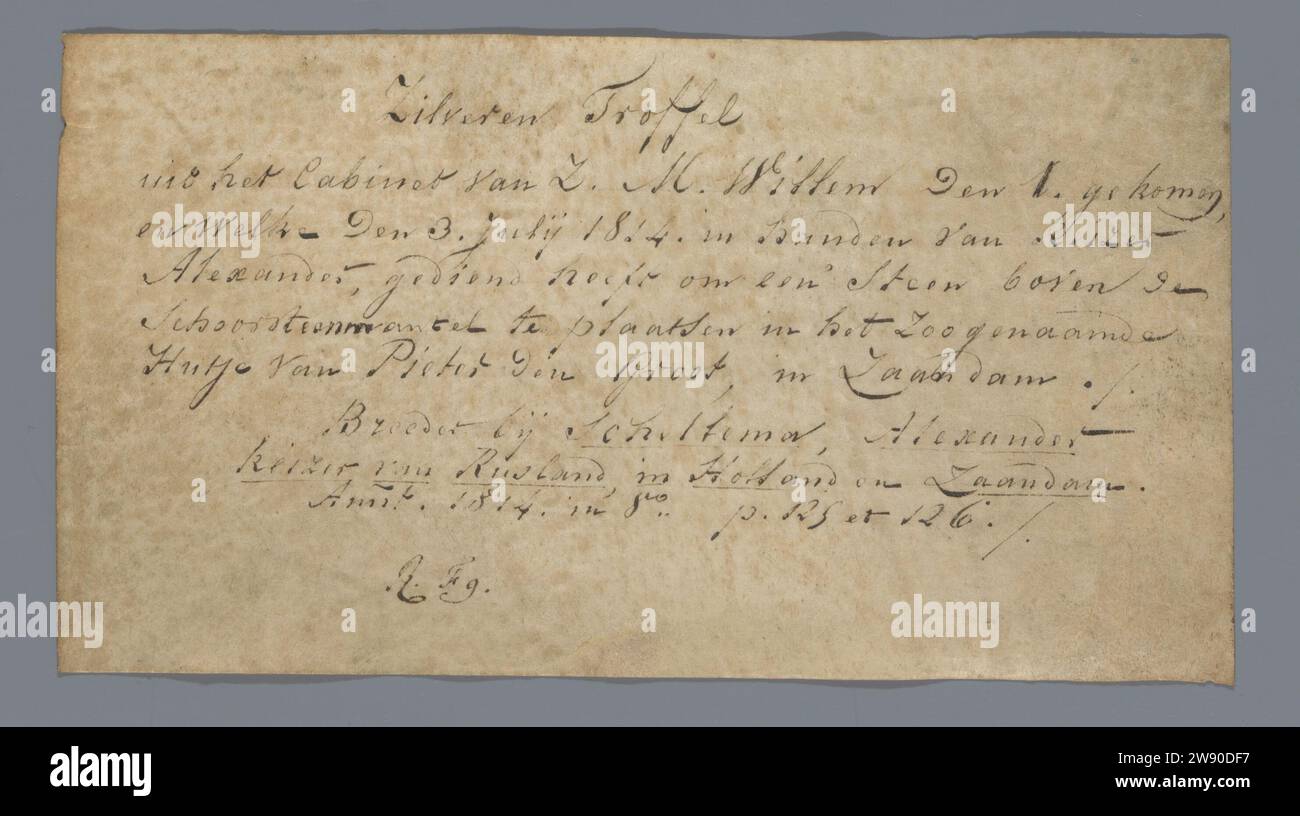 Zilveren Troffel
uit het Cabinet van Z. M. Willem den 1. gekomen,
en welke den 3. julij 1814. in handen van Keizer
Alexander, gediend heeft om een Steen boven de
Schoorsteenmantel te plaatsen in het Zoogenaamde
Hutje van Pieter den Groot, in Zaandam ./.
Breeder bij Scheltema, Alexander
keizer van Rusland in Holland en Zaandam.
Amst. 1814. in 8o. p. 125 et 126. /.
R. Fg.
alamy
Image ID: 2W90DF7
www.alamy.com